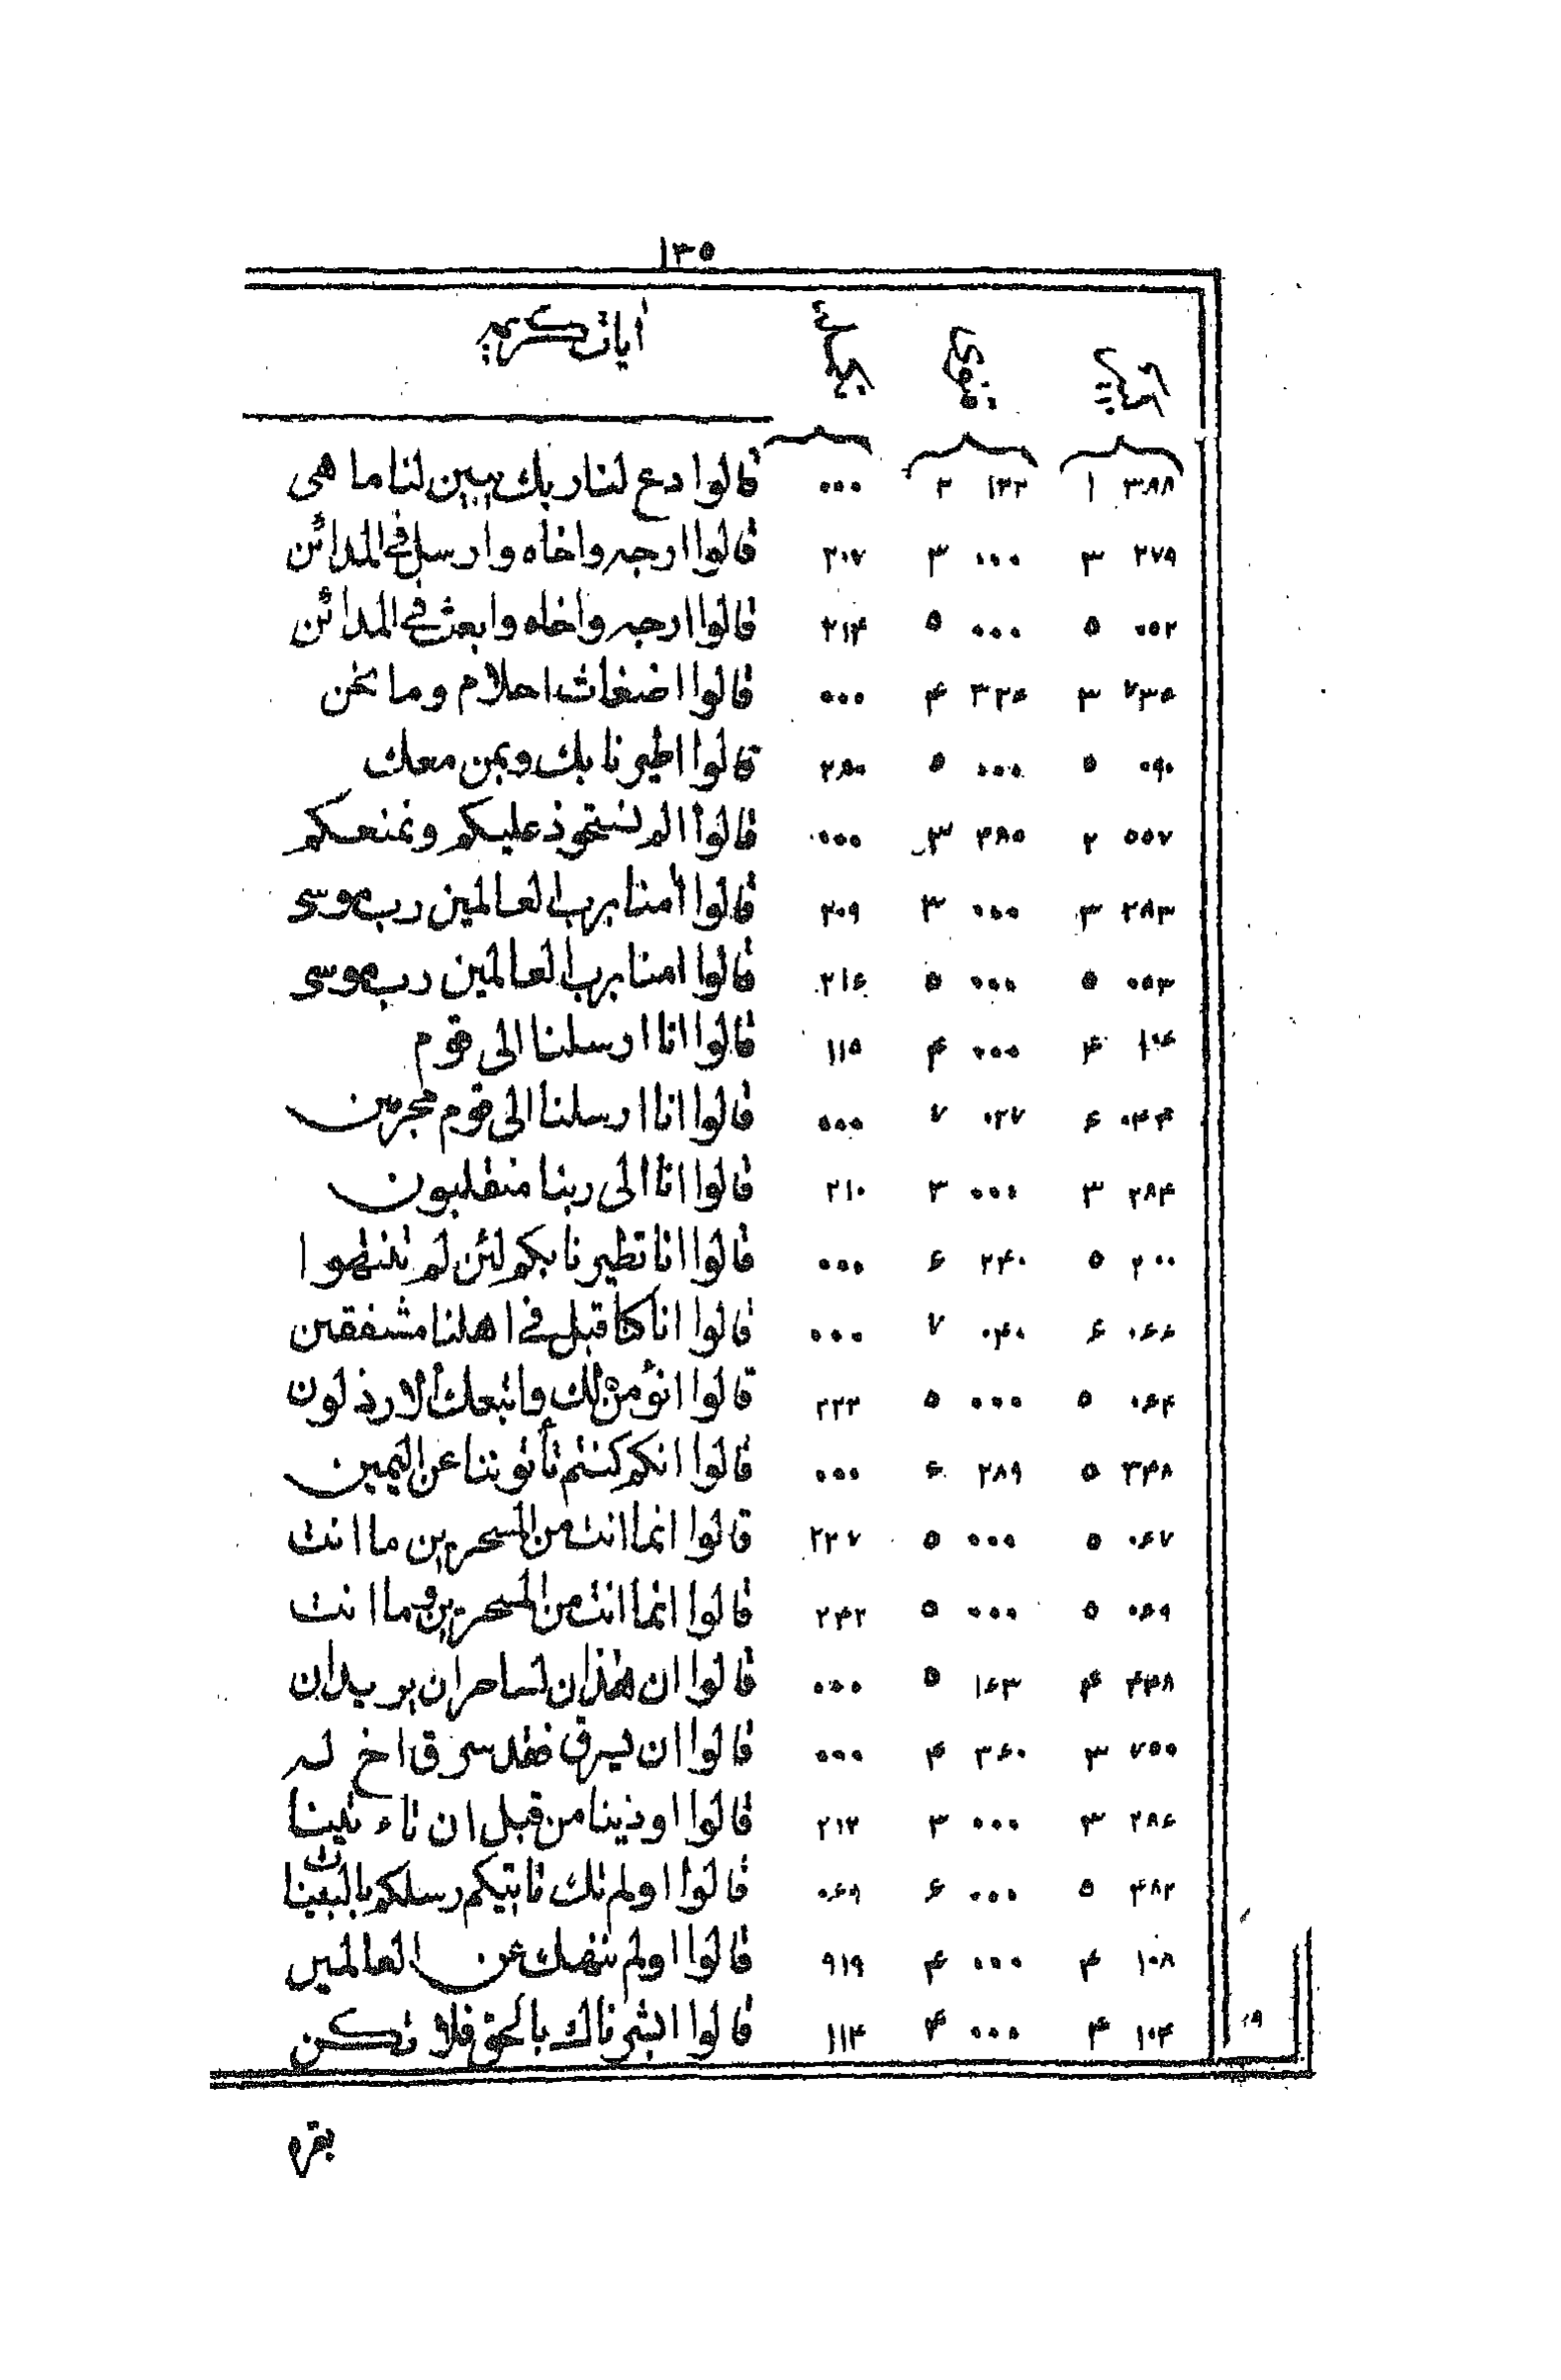 ١٣٥
آيات كريمه
٣٩٨ ١ ١٢٢ ٢ ٠٠٠ قالوا ادع لنا ربك يبين لنا ما هى
٢٧٩ ٣ ٠٠٠ ٣ ٢٠٧ قالوا ارجه واخاه وارسل فى المدائن
٠٥٢ ٥ ٠٠٠ ٥ ٢١۴ قالوا ارجه واخاه وابعث فى المدائن
٧٣٥ ٣ ٣٢۵ ۴ ٠٠٠ قالوا اضغاث احلام وما نحن
٠٩٠ ٥ ٠٠٠ ٥ ٢٨٠ قالوا اطيرنا بك وبمن معك
٥٥٧ ٢ ۴٨٥ ٣ ٠٠٠ قالوا الم نستحوذ عليكم ونمنعكم
٢٨٣ ٣ ٠٠٠ ٣ ٢٠٩ قالوا آمنا برب العالمين رب موسى
٠٥٣ ٥ ٠٠٠ ٥ ٢١۶ قالوا امنا برب العالمين رب موسى
١٠۶ ۴ ٠٠٠ ۴ ١١٥ قالوا انا ارسلنا الى قوم
٠۴۴ ۶ ٠٢٧ ٧ ٠٠٠ قالوا انا ارسلنا الى قوم مجرمين
٢٨۴ ٣ ٠٠٠ ٣ ٢١٠ قالوا انا الى ربنا منقلبون
٢٠٠ ٥ ٢۴٠ ۶ ٠٠٠ قالوا انا تطيرنا بكم لئن لم تنتهوا
٠۶۶ ۶ ٠۴٠ ٧ ٠٠٠ قالوا انا كنا قبل فى اهلنا مشفقين
٠۶۴ ٥ ٠٠٠ ٥ ٢٢٣ قالوا انؤمن لك واتبعك الارذلون
٣۴٨ ٥ ٢٨٩ ۶ ٠٠٠ قالوا انكم كنتم تأتوننا عن اليمين
٠۶٧ ٥ ٠٠٠ ٥ ٢٣٧ قالوا انما انت من المسحرين ما انت
٠۶٩ ٥ ٠٠٠ ٥ ٢۴٢ قالوا انما انت من المسحرين وما انت
۴٣٨ ۴ ١۶٣ ٥ ٠٠٠ قالوا ان هذان لساحران يريدان
٧٥٥ ٣ ٣۶٠ ۴ ٠٠٠ قالوا ان يسرق فقد سرق اخ له
٢٨۶ ٣ ٠٠٠ ٣ ٢١٢ قالوا اوذينا من قبل ان تاء تينا
۴٨٢ ٥ ٠٠٠ ۶ ٠۶٩ قالوا اولم تك تاتيكم رسلكم بالبينات
١٠٨ ۴ ٠٠٠ ۴ ٩١٩ قالوا اولم ننهك عن العالمين
١٠۴ ۴ ٠٠٠ ۴ ١١۴ قالوا ابشرناك بالحق فلا تكن
بقره